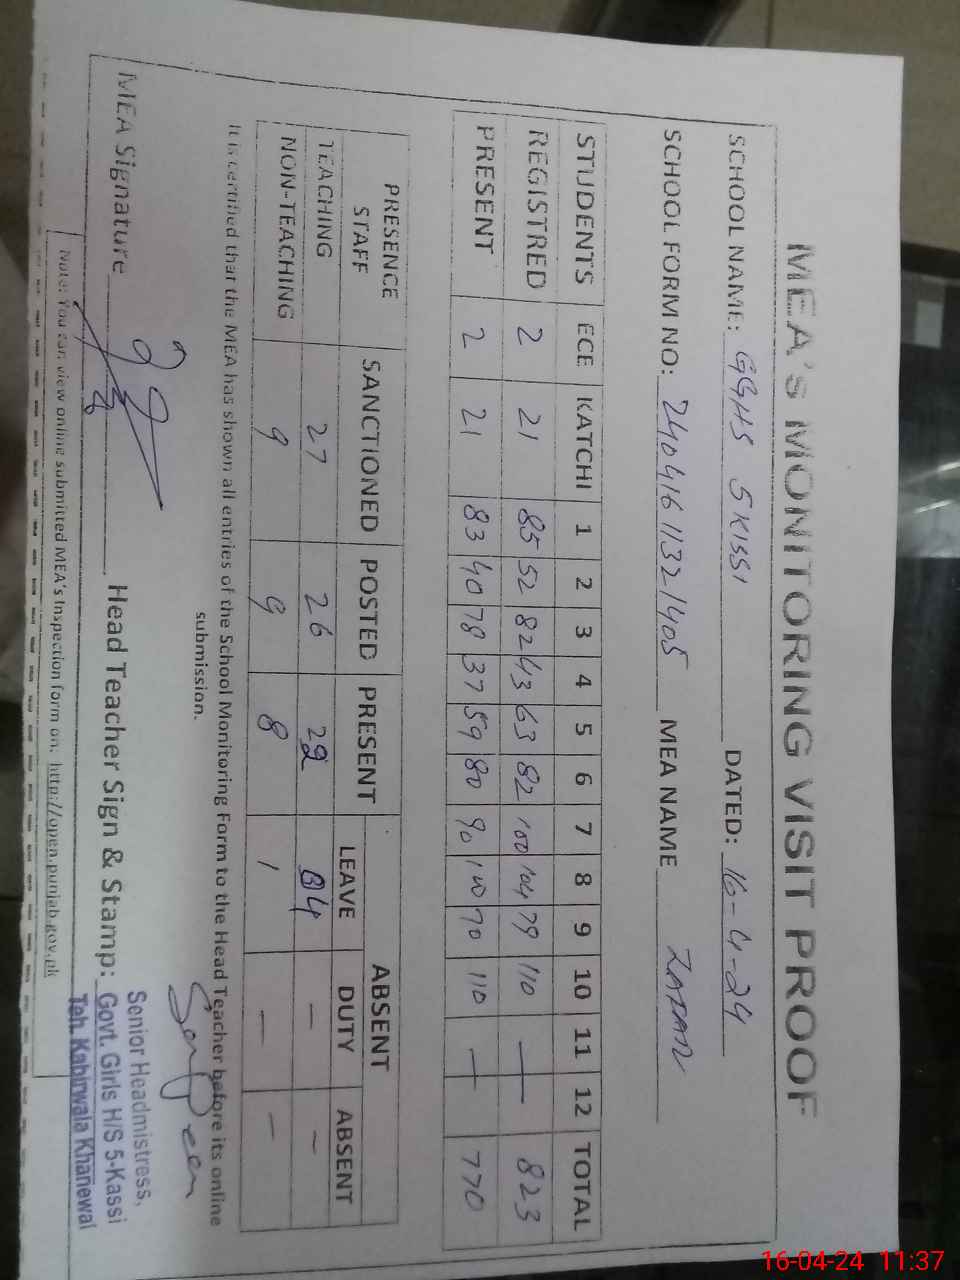 MEA'S MONITORING VISIT PROOF
SCHOOL NAME: GGHS 5 KISSI DATED: 16-4-24
SCHOOL FORM NO: 2404161132 1405 MEA NAME ZAFAR
STUDENTS ECE KATCHI 1 2 3 4 5 6 7 8 9 10 11 12 TOTAL
REGISTRED 2 21 85 52 82 43 63 82 100 104 79 110 — 823
PRESENT 2 21 83 40 78 37 59 80 90 100 70 110 — 770
PRESENCE STAFF SANCTIONED POSTED PRESENT ABSENT
LEAVE DUTY ABSENT
TEACHING 27 26 22 4 — —
NON-TEACHING 9 9 8 1 — —
It is certified that the MEA has shown all entries of the School Monitoring Form to the Head Teacher before its online
submission.
MEA Signature Head Teacher Sign & Stamp:
Senior Headmistress,
Govt. Girls H/S 5-Kassi
Teh. Kabirwala Khanewal
Note: You can view online submitted MEA's Inspection form on: http://open.punjab.gov.pk
16-04-24 11:37